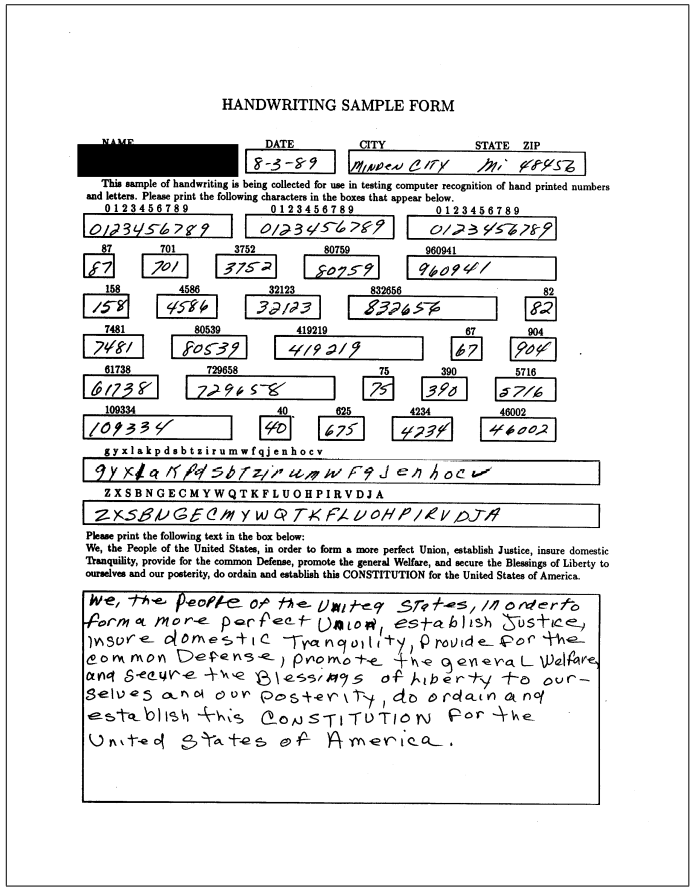 HANDWRITING SAMPLE FORM
NAME DATE CITY STATE ZIP
8-3-89 MINDEN CITY Mi 48456
This sample of handwriting is being collected for use in testing computer recognition of hand printed numbers
and letters. Please print the following characters in the boxes that appear below.
0 1 2 3 4 5 6 7 8 9 0 1 2 3 4 5 6 7 8 9 0 1 2 3 4 5 6 7 8 9
0123456789 0123456789 0123456789
87 701 3752 80759 960941
87 701 3752 80759 960941
158 4586 32123 832656 82
158 4586 32123 832656 82
7481 80539 419219 67 904
7481 80539 419219 67 904
61738 729658 75 390 5716
61738 729658 75 390 5716
109334 40 625 4234 46002
109334 40 675 4234 46002
g y x l a k p d s b t z i r u m w f q j e n h o c v
g y x l a K p d s b T z i r u m w F q J e n h o c v
Z X S B N G E C M Y W Q T K F L U O H P I R V D J A
Z X S B N G E C M Y W Q T K F L U O H P I R V D J A
Please print the following text in the box below:
We, the People of the United States, in order to form a more perfect Union, establish Justice, insure domestic
Tranquility, provide for the common Defense, promote the general Welfare, and secure the Blessings of Liberty to
ourselves and our posterity, do ordain and establish this CONSTITUTION for the United States of America.
We, the People of the United States, in order to
form a more perfect Union, establish Justice,
insure domestic Tranquility, Provide for the
common Defense, promote the general Welfare,
and secure the Blessings of Liberty to our-
selves and our Posterity, do ordain and
establish this CONSTITUTION for the
United States of America.